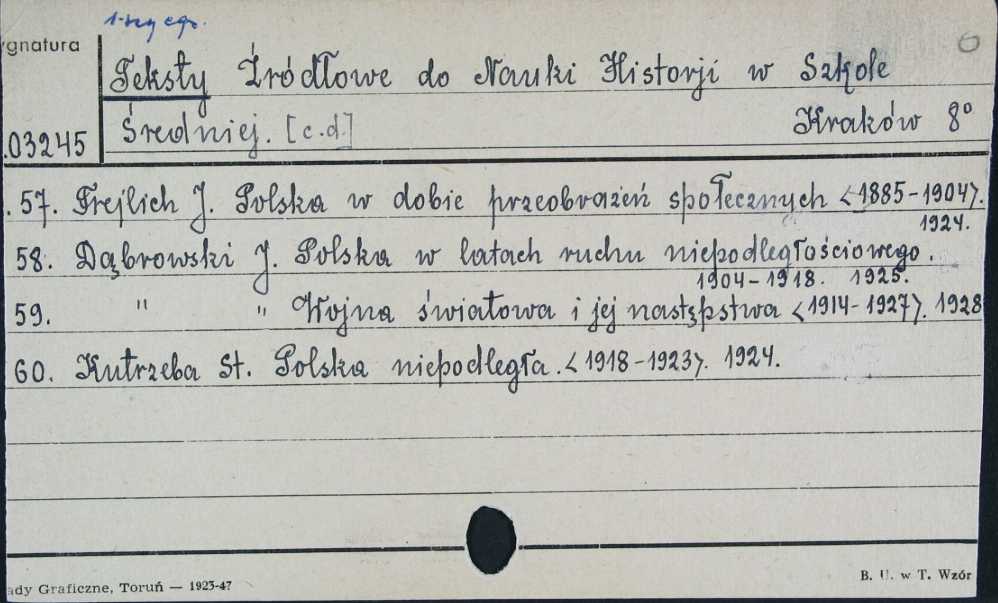 1-szy egz.
ygnatura
Teksty Źródłowe do Nauki Historji w Szkole
.03245 Średniej. [c.d.] Kraków 8°
. 57. Frejlich J. Polska w dobie przeobrażeń społecznych <1885-1904>.
1924.
58. Dąbrowski J. Polska w latach ruchu niepodległościowego.
1904-1918. 1925.
59. " " Wojna światowa i jej następstwa <1914-1927>. 1928
60. Kutrzeba St. Polska niepodległa. <1918-1923>. 1924.
ady Graficzne, Toruń — 1923-47
B. U. w T. Wzór